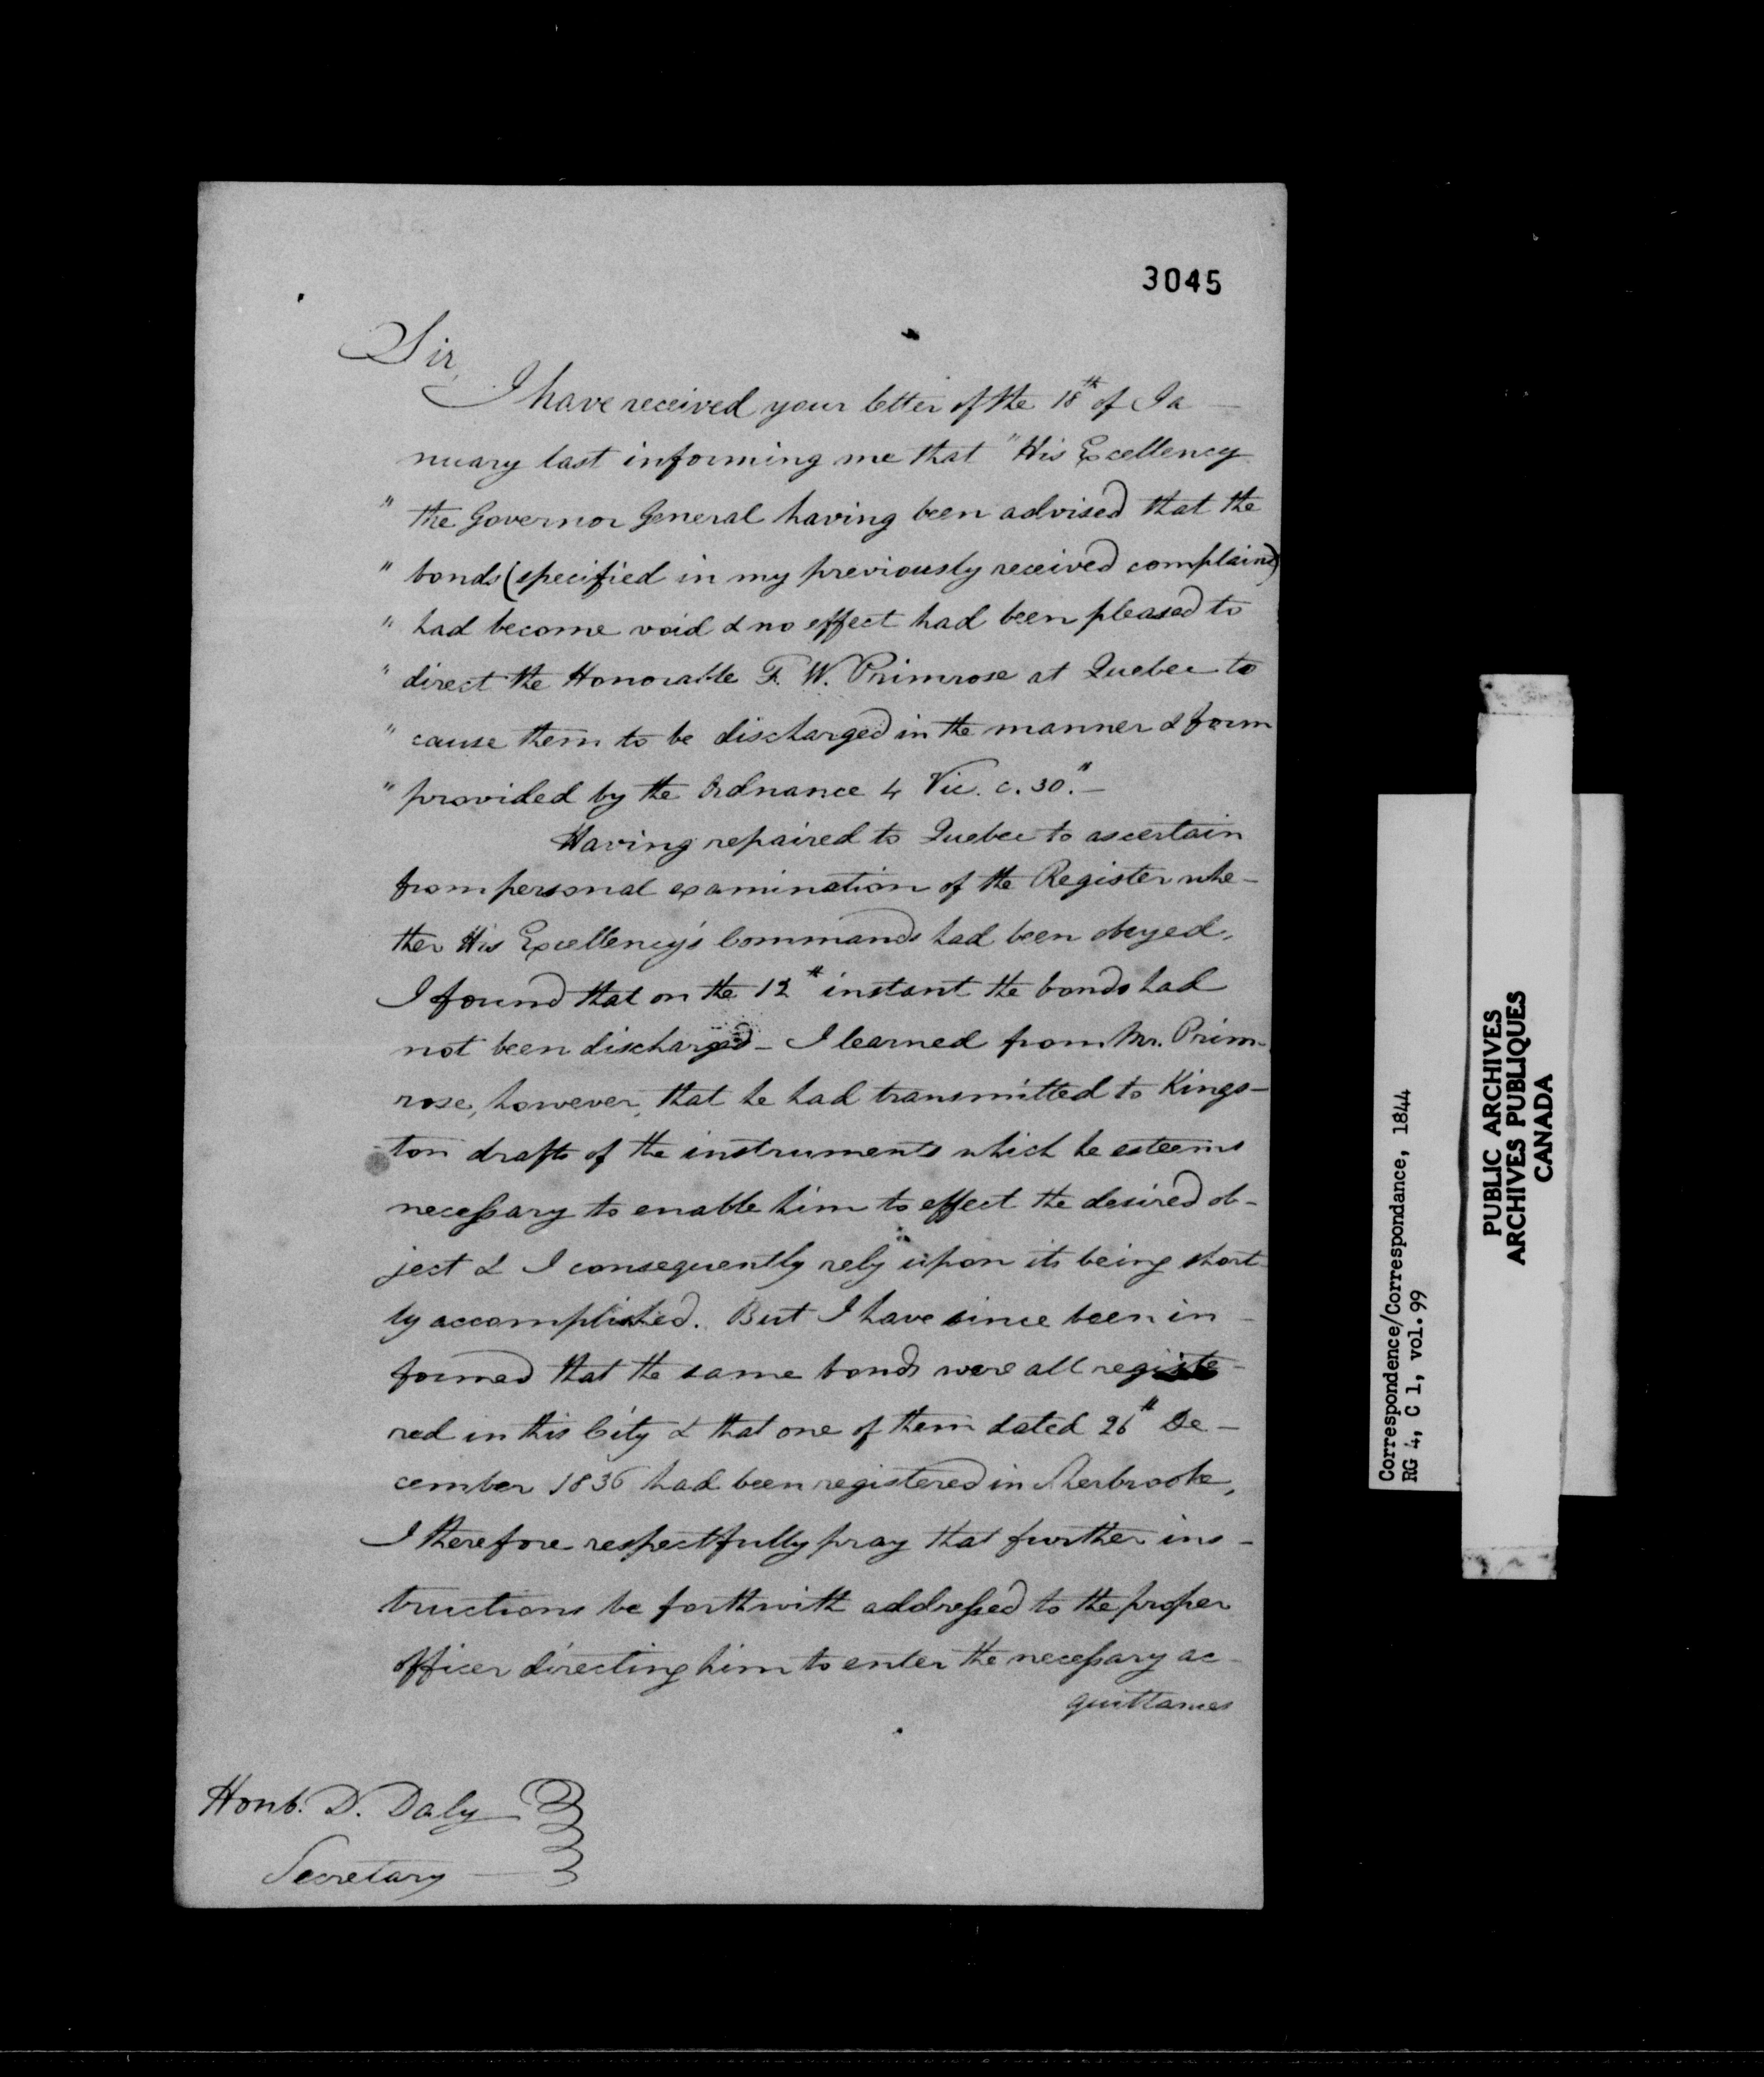 3045
Sir,
I have received your letter of the 18th of Ja-
nuary last informing me that "His Excellency
" the Governor General having been advised that the
" bonds (specified in my previously received complaint)
" had become void & no effect had been pleased to
" direct the Honorable F. W. Primrose at Quebec to
" cause them to be discharged in the manner & form
" provided by the Ordnance 4 Vic. c. 30."—
Having repaired to Quebec to ascertain
from personal examination of the Register whe-
ther His Excellency's Commands had been obeyed,
I found that on the 12th instant the bonds had
not been discharged — I learned from Mr. Prim-
rose, however, that he had transmitted to Kings-
ton drafts of the instruments which he esteems
necessary to enable him to effect the desired ob-
ject & I consequently rely upon its being short-
ly accomplished. But I have since been in-
formed that the same bonds were all registe-
red in this City & that one of them dated 26th De-
cember 1836 had been registered in Sherbrooke,
I therefore respectfully pray that further ins-
tructions be forthwith addressed to the proper
officer directing him to enter the necessary ac-
quittances
Honb. D. Daly
Secretary
Correspondence/Correspondance, 1844
RG 4, C 1, vol. 99
PUBLIC ARCHIVES
ARCHIVES PUBLIQUES
CANADA